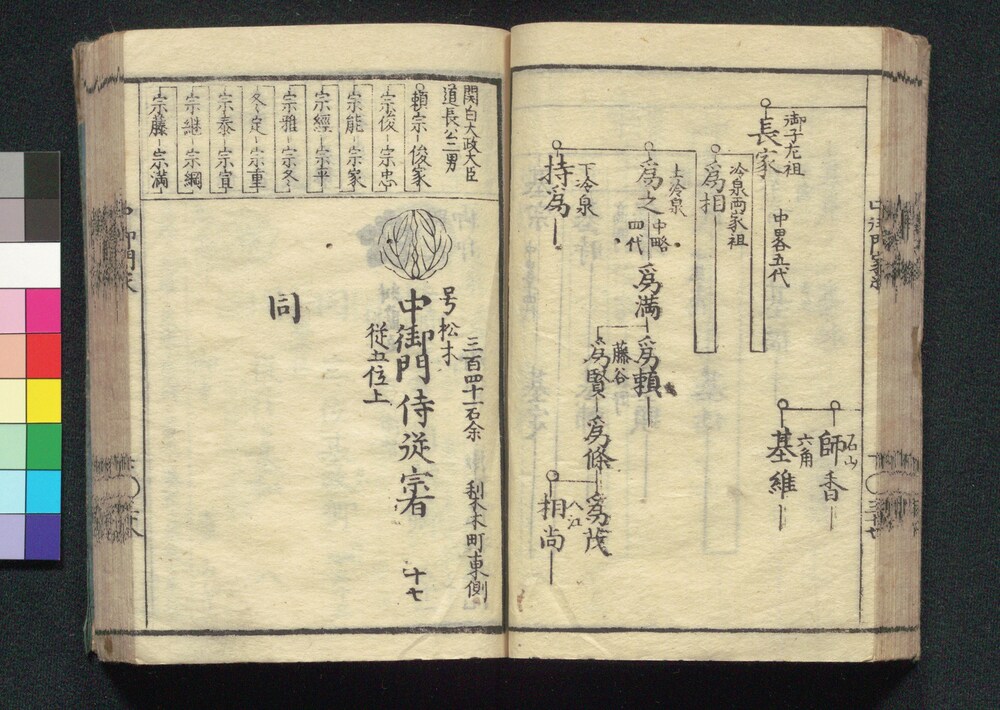 御子左祖
長家
中畧五代
石山
師香
六角
基維
冷泉両家祖
為相
上冷泉
為之
中略
四代
為満
為頼
藤谷
為賢
為條
為茂
入江
相尚
下冷泉
持為
関白大政大臣
道長公二男
頼宗
俊家
宗俊
宗忠
宗能
宗家
宗經
宗平
宗雅
宗冬
冬定
宗重
宗泰
宗宣
宗継
宗綱
宗藤
宗満
三百四十一石余
号松木
中御門侍従宗
十七
従五位上
同
中御門家